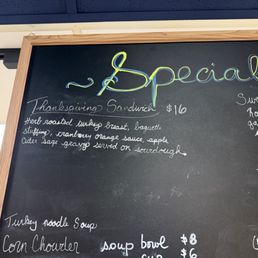 Special
Thanksgiving Sandwich $16
Herb roasted turkey breast, baguette
stuffing, cranberry orange sauce, apple
cider sage gravy served on sourdough
Turkey noodle Soup
Corn Chowder soup bowl $8
cup $6